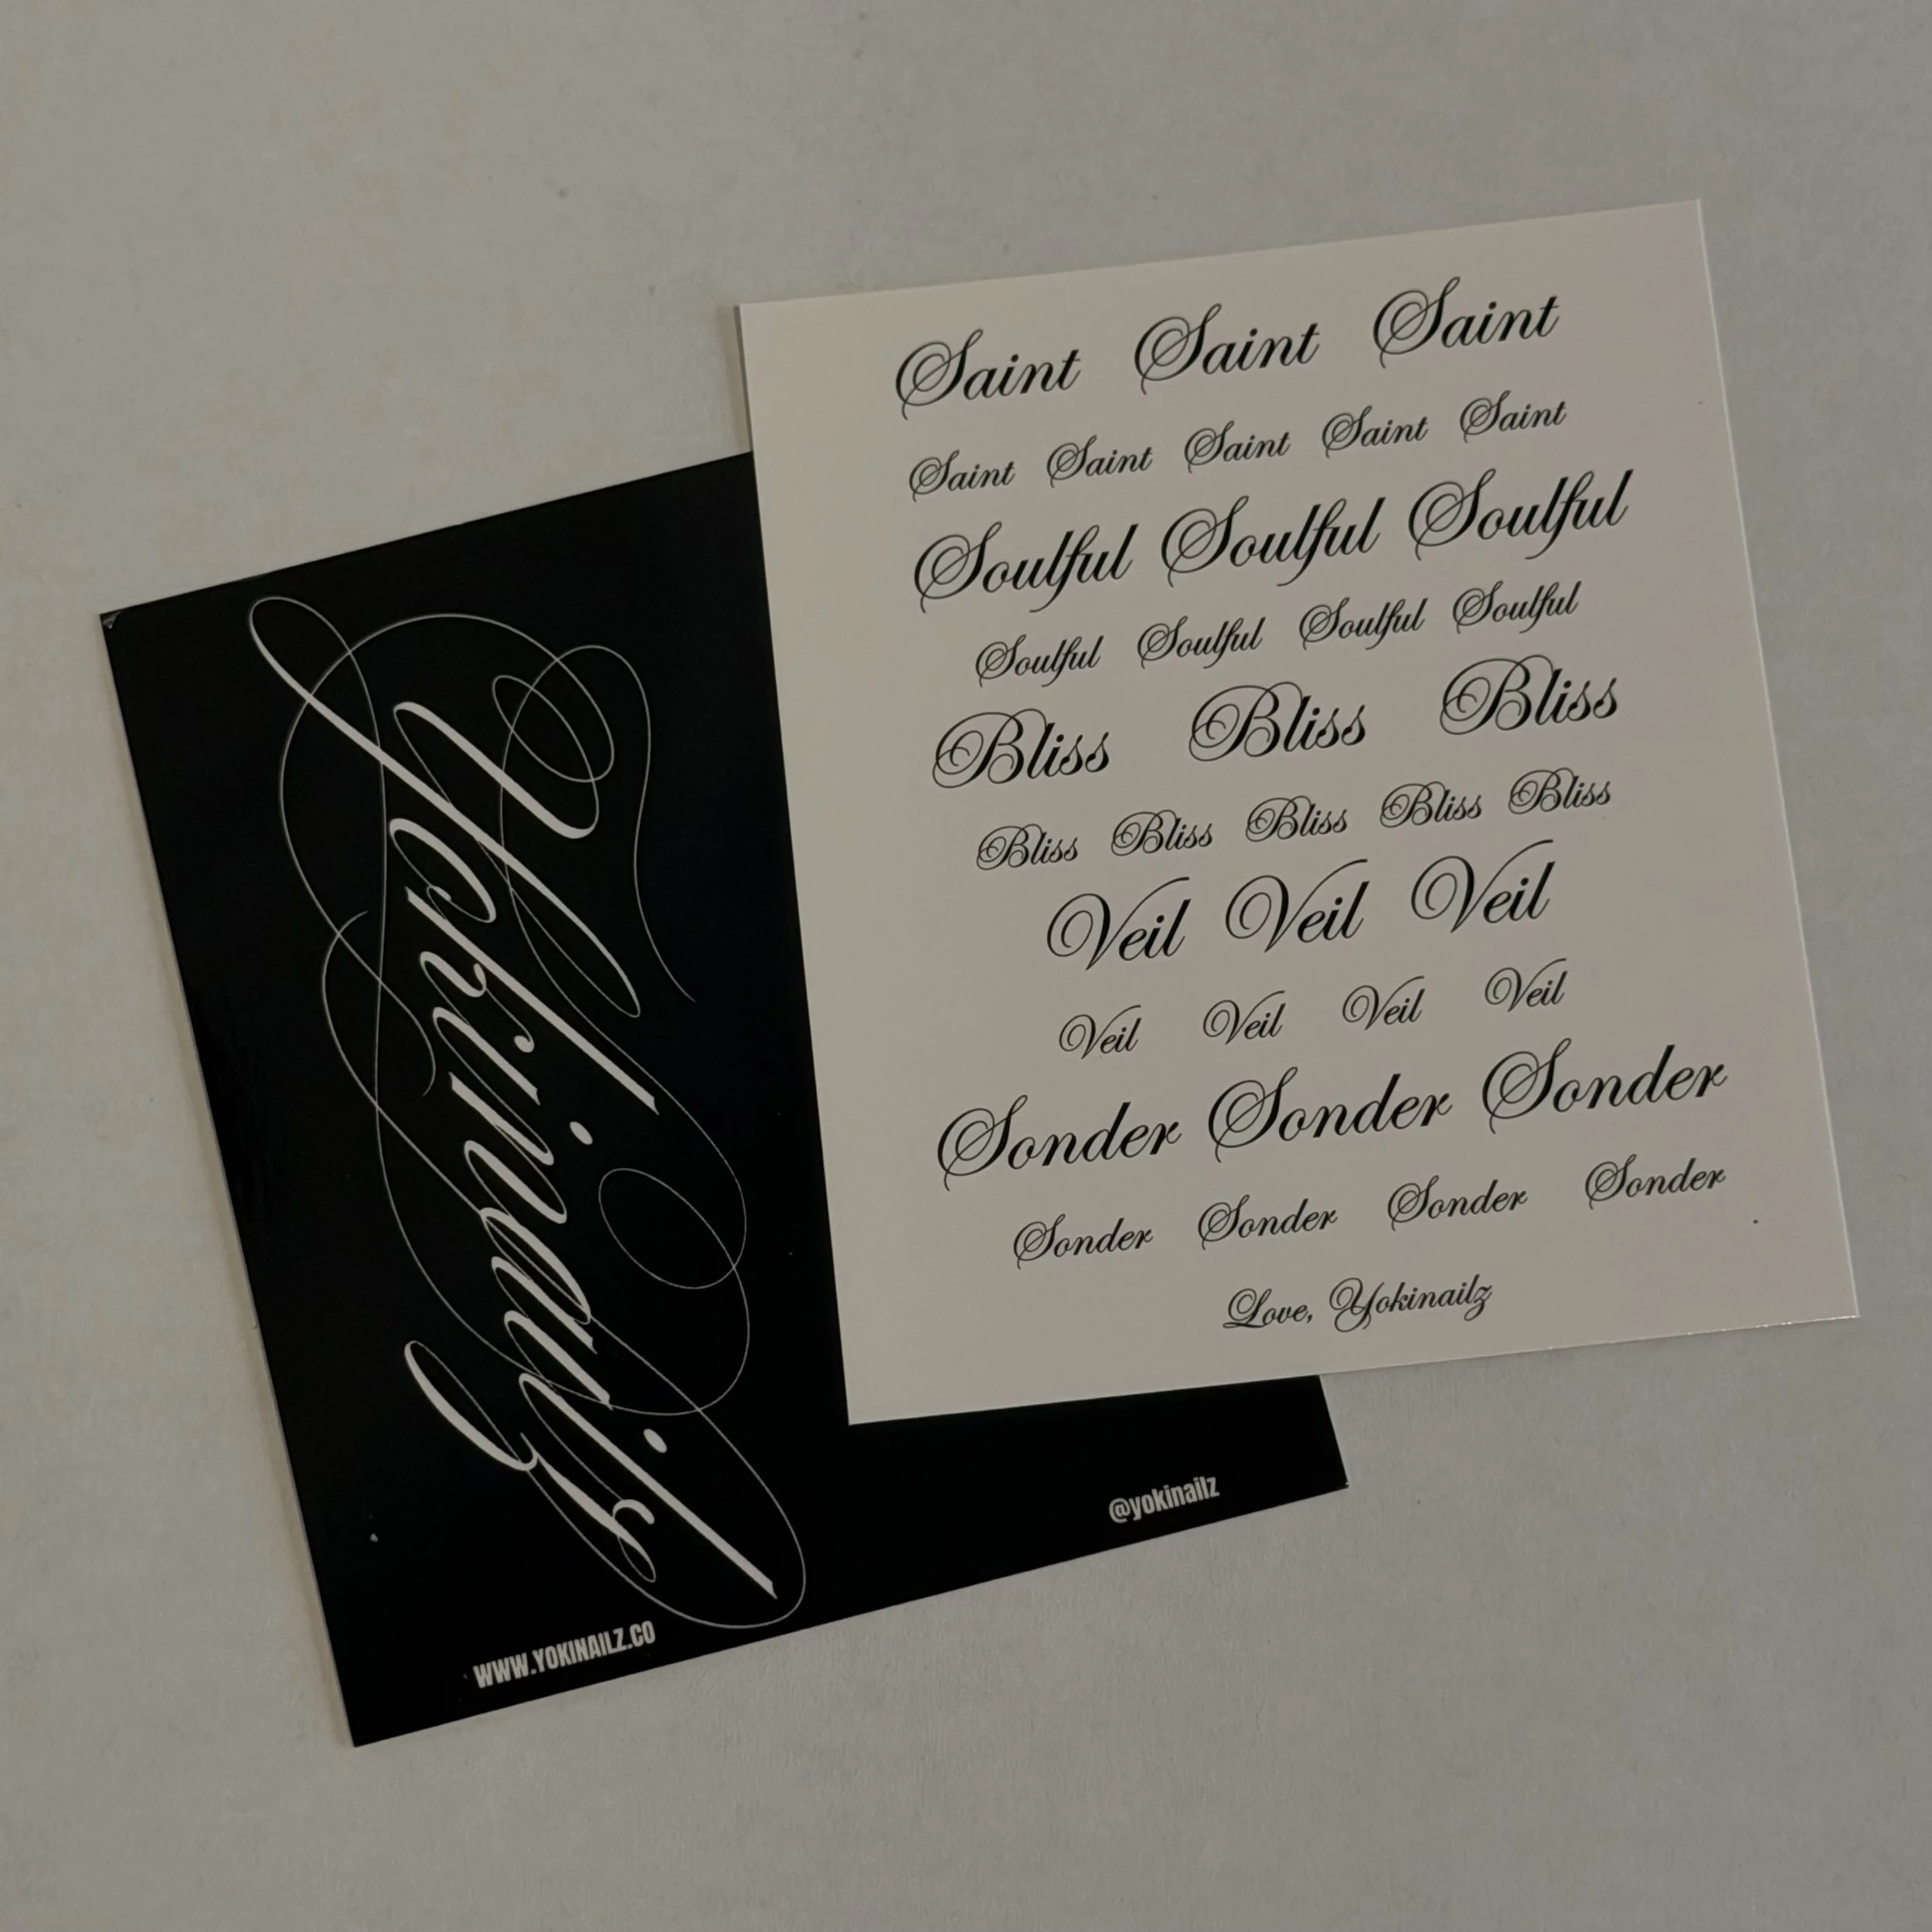 Saint Saint Saint
Saint Saint Saint Saint Saint
Soulful Soulful Soulful
Soulful Soulful Soulful Soulful
Bliss Bliss Bliss
Bliss Bliss Bliss Bliss Bliss
Veil Veil Veil
Veil Veil Veil Veil
Sonder Sonder Sonder
Sonder Sonder Sonder Sonder
Love, Yokinailz
Yokinailz
WWW.YOKINAILZ.CO
@yokinailz